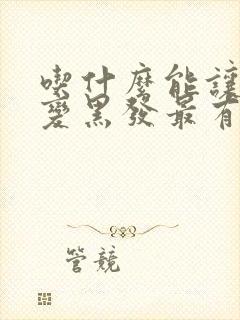 喫什麼能讓
變黑發最有
管競